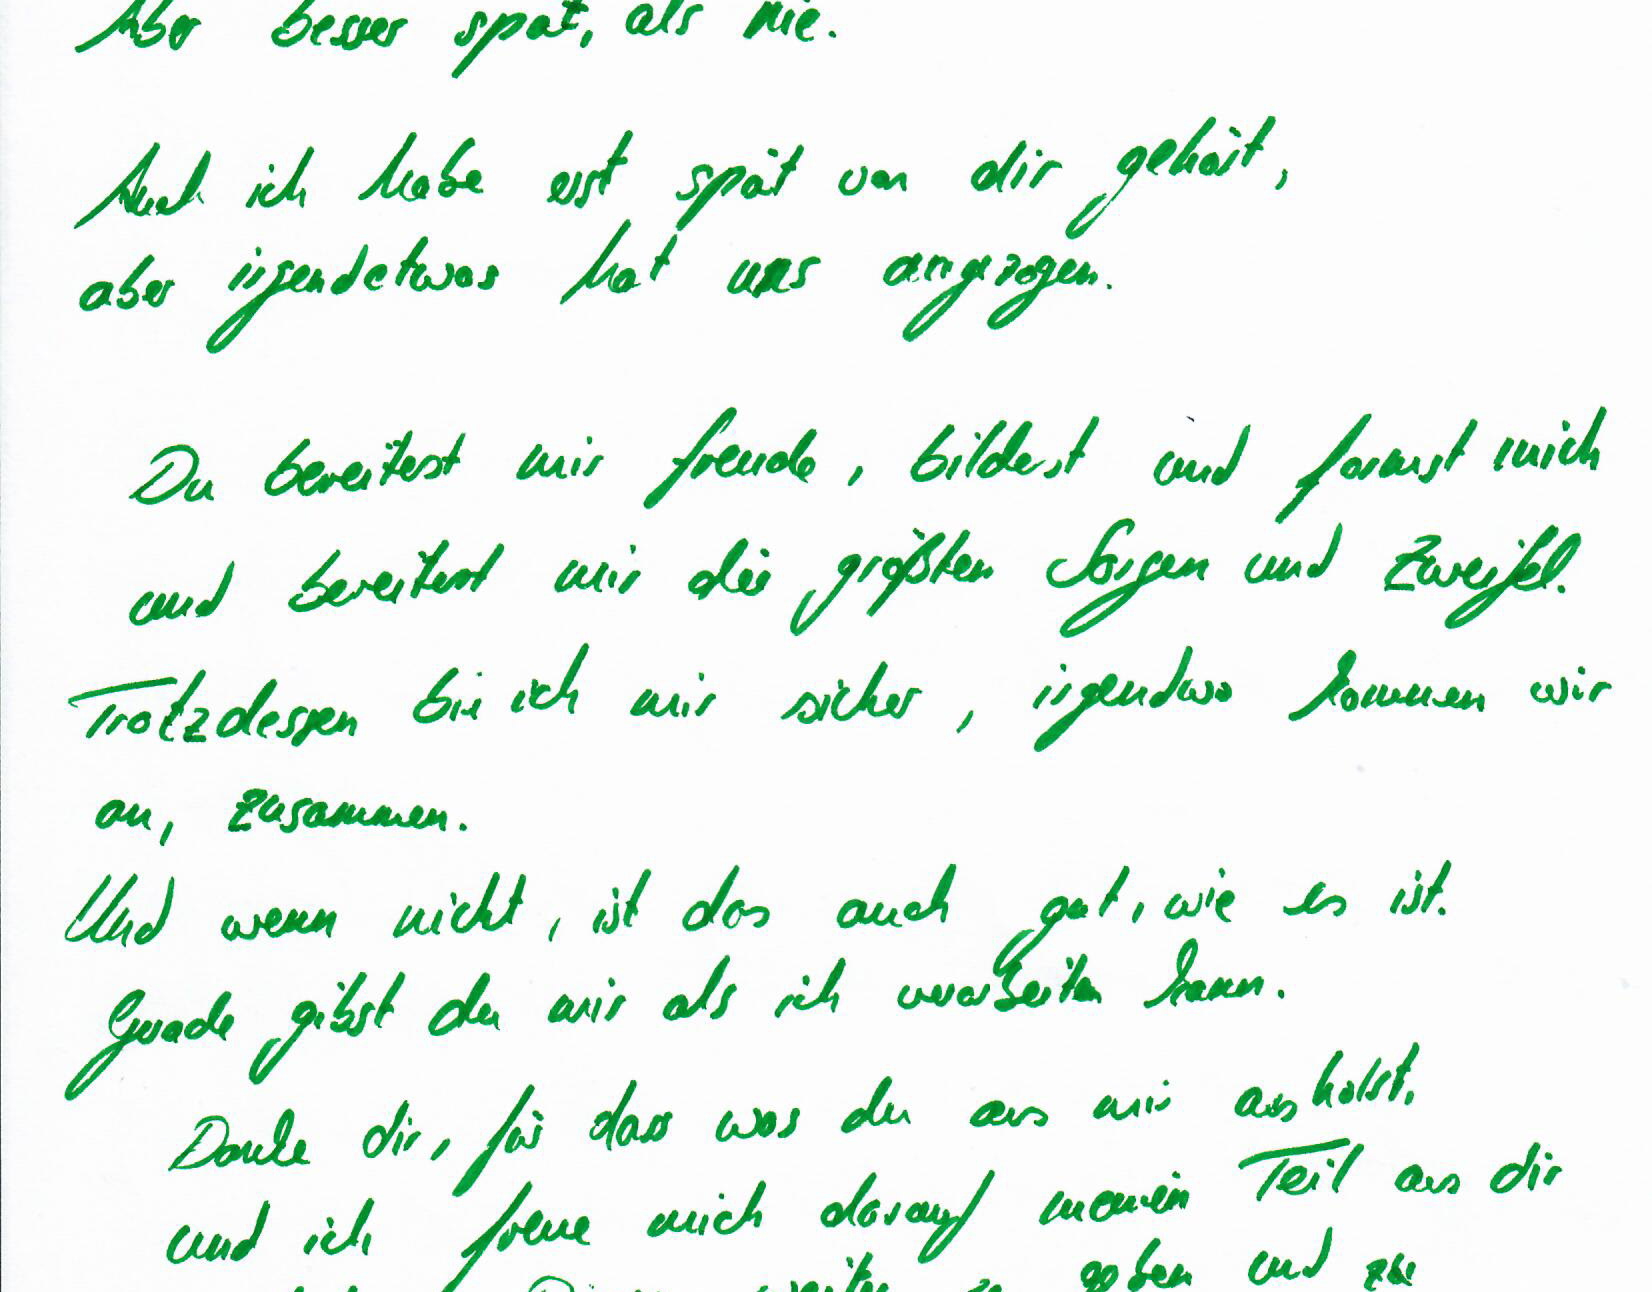 Aber besser spät, als nie.
Auch ich habe erst spät von dir gehört,
aber irgendetwas hat uns angezogen.
Du bereitest mir freude, bildest und formst mich
und bereitest mir die größten Sorgen und Zweifel.
Trotzdessen bin ich mir sicher, irgendwo kommen wir
an, zusammen.
Und wenn nicht, ist das auch gut, wie es ist.
Gerade gibst du mir als ich verarbeiten kann.
Danke dir, für dass was du aus mir aus holst.
und ich freue mich darauf meinen Teil aus dir
weiter zu geben und zu